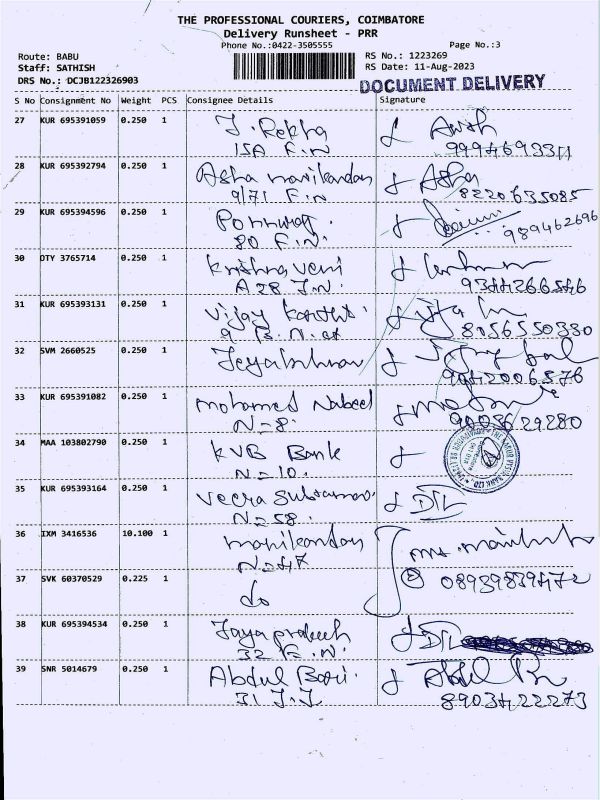 THE PROFESSIONAL COURIERS, COIMBATORE
Delivery Runsheet - PRR
Phone No.:0422-3505555 Page No.:3
Route: BABU RS No.: 1223269
Staff: SATHISH RS Date: 11-Aug-2023
DRS No.: DCJB122326903
DOCUMENT DELIVERY
S No Consignment No Weight PCS Consignee Details Signature
27 KUR 695391059 0.250 1 J. Rekha
15A F.N
28 KUR 695392794 0.250 1 Asha manikandan Asha
9/71 F.N 8220635085
29 KUR 695394596 0.250 1
80 F.N. 989462696
30 DTY 3765714 0.250 1 Krishna veni
A 28 J.N. 9344266546
31 KUR 695393131 0.250 1 Vijay Karthi
8056550330
32 SVM 2660525 0.250 1 Jeyakrishnan
9042006576
33 KUR 695391082 0.250 1 mohamed Nabeel
N=8. 9003629280
34 MAA 103802790 0.250 1 KVB Bank
N=10.
35 KUR 695393164 0.250 1 Veera Subramani
N=58.
36 IXM 3416536 10.100 1 manikandan
N=47
37 SVK 60370529 0.225 1 do 08939839472
38 KUR 695394534 0.250 1 Jaya prakash
32 F.N.
39 SNR 5014679 0.250 1 Abdul Bari.
31 J.J 8903422273